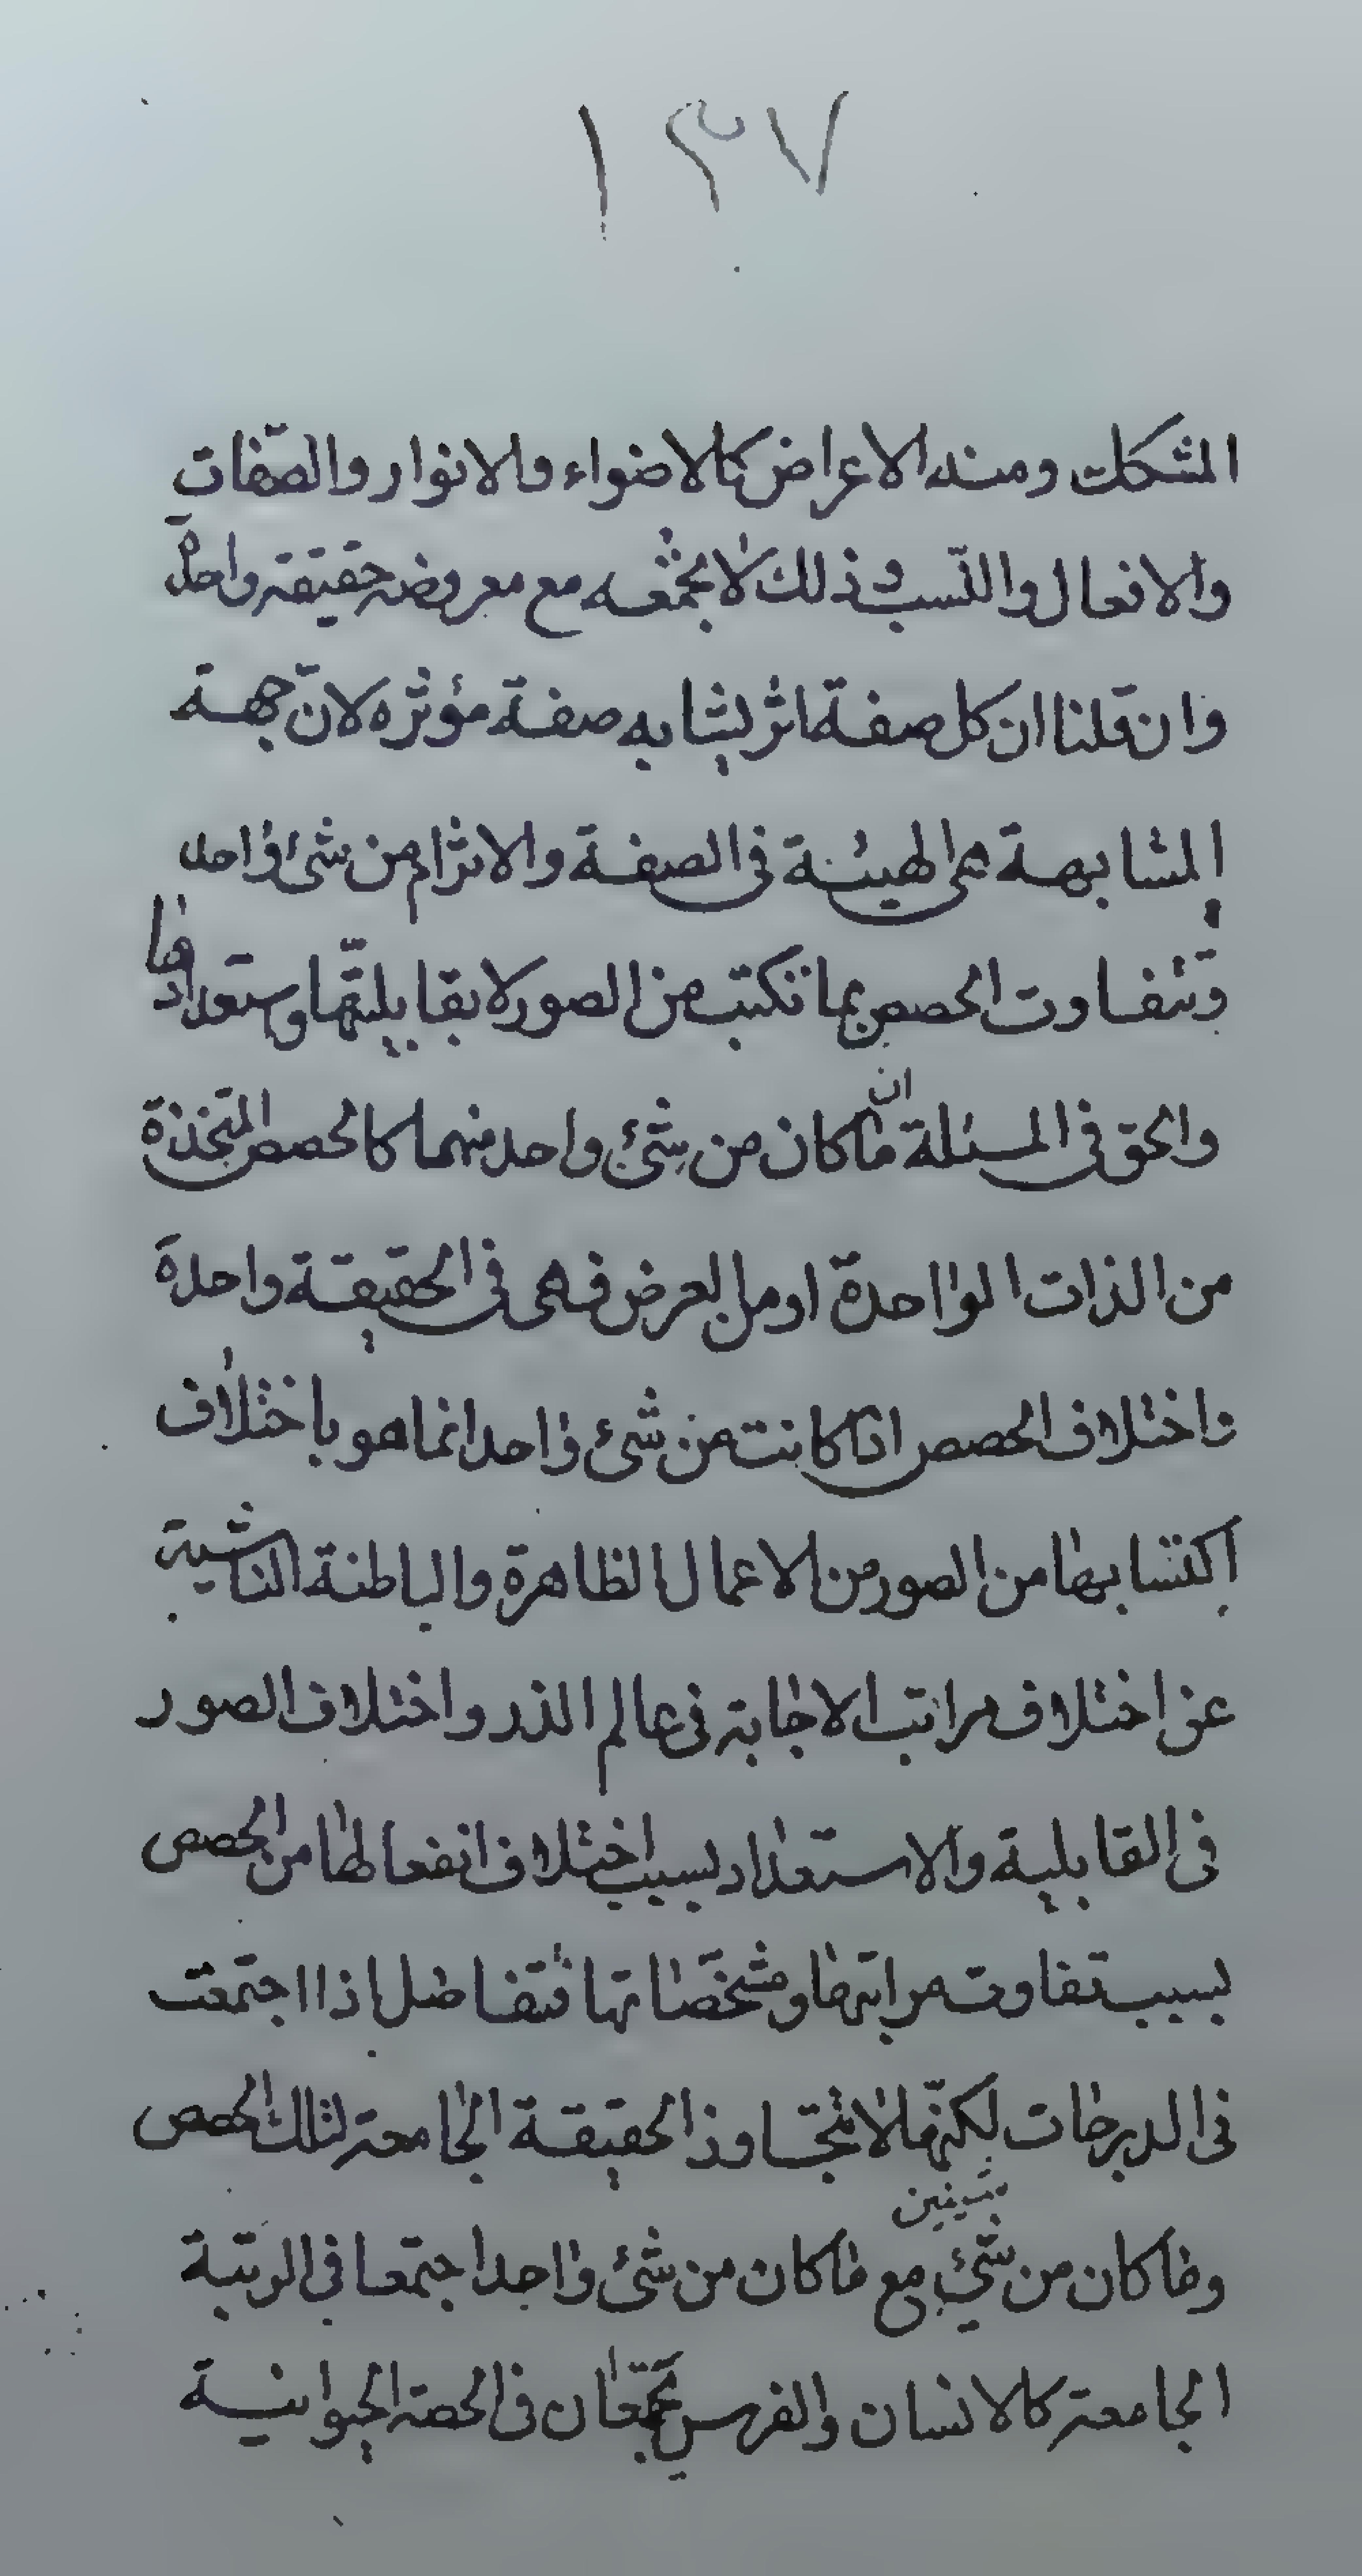 ١٣٧
المشكك ومنه الاعراض كالاضواء والانوار والصّفات
والافعال والنّسب وذلك لا يجمعه مع معروضه حقيقة واحدة
وان قلنا ان كل صفة اثر يشابه صفة مؤثره لانّ جهة
المشابهة هى الهيئة فى الصفة والاثر من شئ واحد
وتتفاوت الحصص بما تكتب من الصور لا بقابليّتها واستعدادها
والحق فى المسئلة ان ما كان من شئ واحد منهما كالحصص المتخذة
من الذات الواحدة او من العرض فهى فى الحقيقة واحدة
واختلاف الحصص اذا كانت من شئ واحد انما هو باختلاف
اكتسابها من الصور من الاعمال الظاهرة والباطنة الناشية
عن اختلاف مراتب الاجابة فى عالم الذر واختلاف الصور
فى القابلية والاستعداد بسبب اختلاف انفعالها من الحصص
بسبب تفاوت مراتبها ومشخّصاتها فتتفاضل اذا اجتمعت
فى الدرجات لكنّها لا تتجاوز الحقيقة الجامعة لتلك الحصص
وما كان من شيئين مع ما كان من شئ واحد اجتمعا فى الرتبة
الجامعة كالانسان والفرس يجتمعان فى الحصة الحيوانية